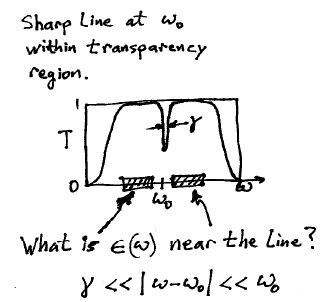 Sharp Line at ω₀
within transparency
region.
1
T
γ
0
ω₀
ω
What is ϵ(ω) near the line?
γ << |ω-ω₀| << ω₀